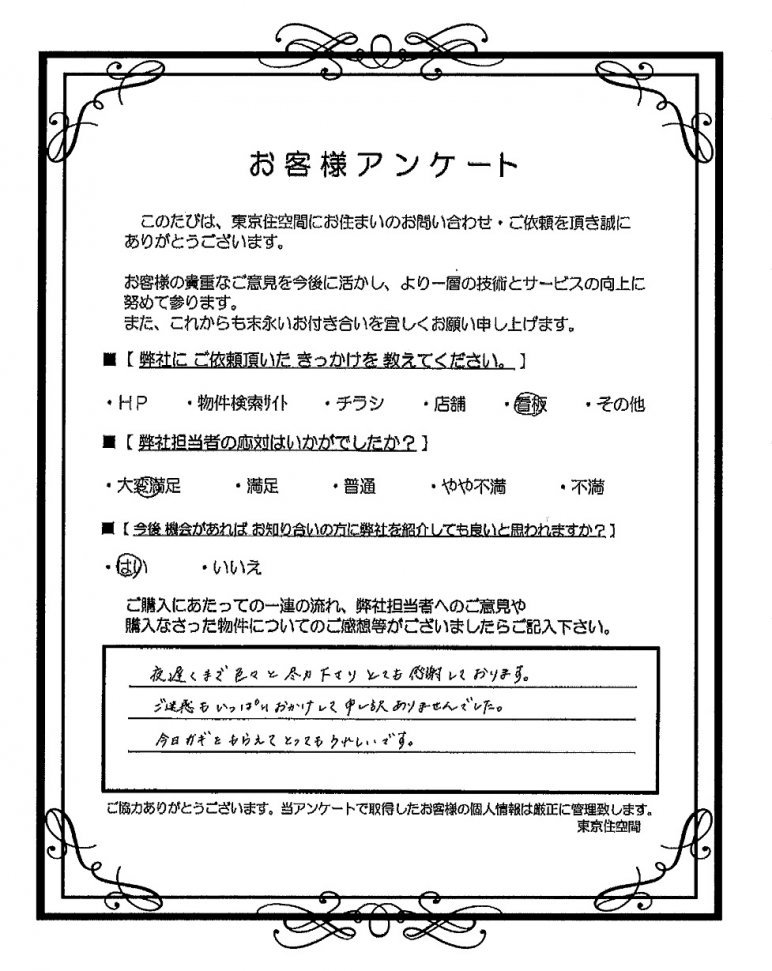 お客様アンケート
このたびは、東京住空間にお住まいのお問い合わせ・ご依頼を頂き誠に
ありがとうございます。
お客様の貴重なご意見を今後に活かし、より一層の技術とサービスの向上に
努めて参ります。
また、これからも末永いお付き合いを宜しくお願い申し上げます。
■【 弊社に ご依頼頂いた きっかけを 教えてください。 】
・HP ・物件検索サイト ・チラシ ・店舗 ・看板 ・その他
■【 弊社担当者の応対はいかがでしたか？】
・大変満足 ・満足 ・普通 ・やや不満 ・不満
■【 今後 機会があれば お知り合いの方に弊社を紹介しても良いと思われますか？】
・はい ・いいえ
ご購入にあたっての一連の流れ、弊社担当者へのご意見や
購入なさった物件についてのご感想等がございましたらご記入下さい。
夜遅くまで色々と尽力下さりとても感謝しております。
ご迷惑もいっぱいおかけして申し訳ありませんでした。
今日カギをもらえてとってもうれしいです。
ご協力ありがとうございます。当アンケートで取得したお客様の個人情報は厳正に管理致します。
東京住空間